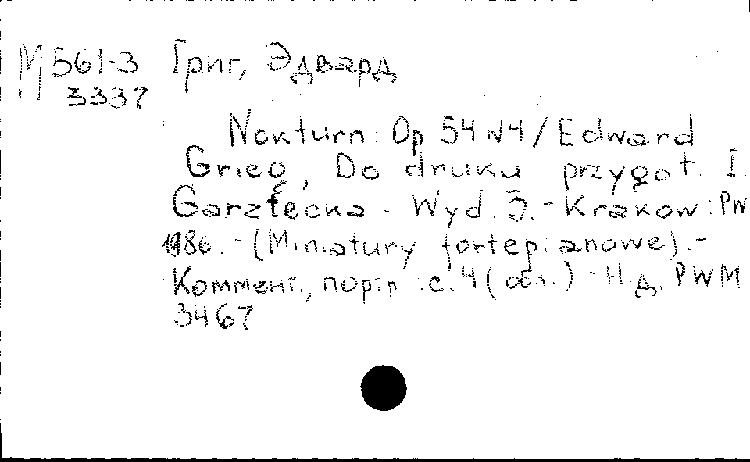 М 561-3 Григ, Эдвард
3337
Nokturn: Op 54 N4 / Edward
Grieg, Do druku przygot. I.
Garztecka. - Wyd. 3. - Krakow: PW
1986. - (Miniatury fortepianowe). -
Коммент., портр.: с. 4 (обл.) - Н.д. PWM
3467